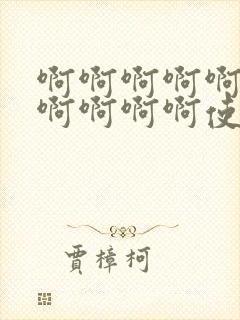 啊啊啊啊啊
啊啊啊啊使
賈樟柯